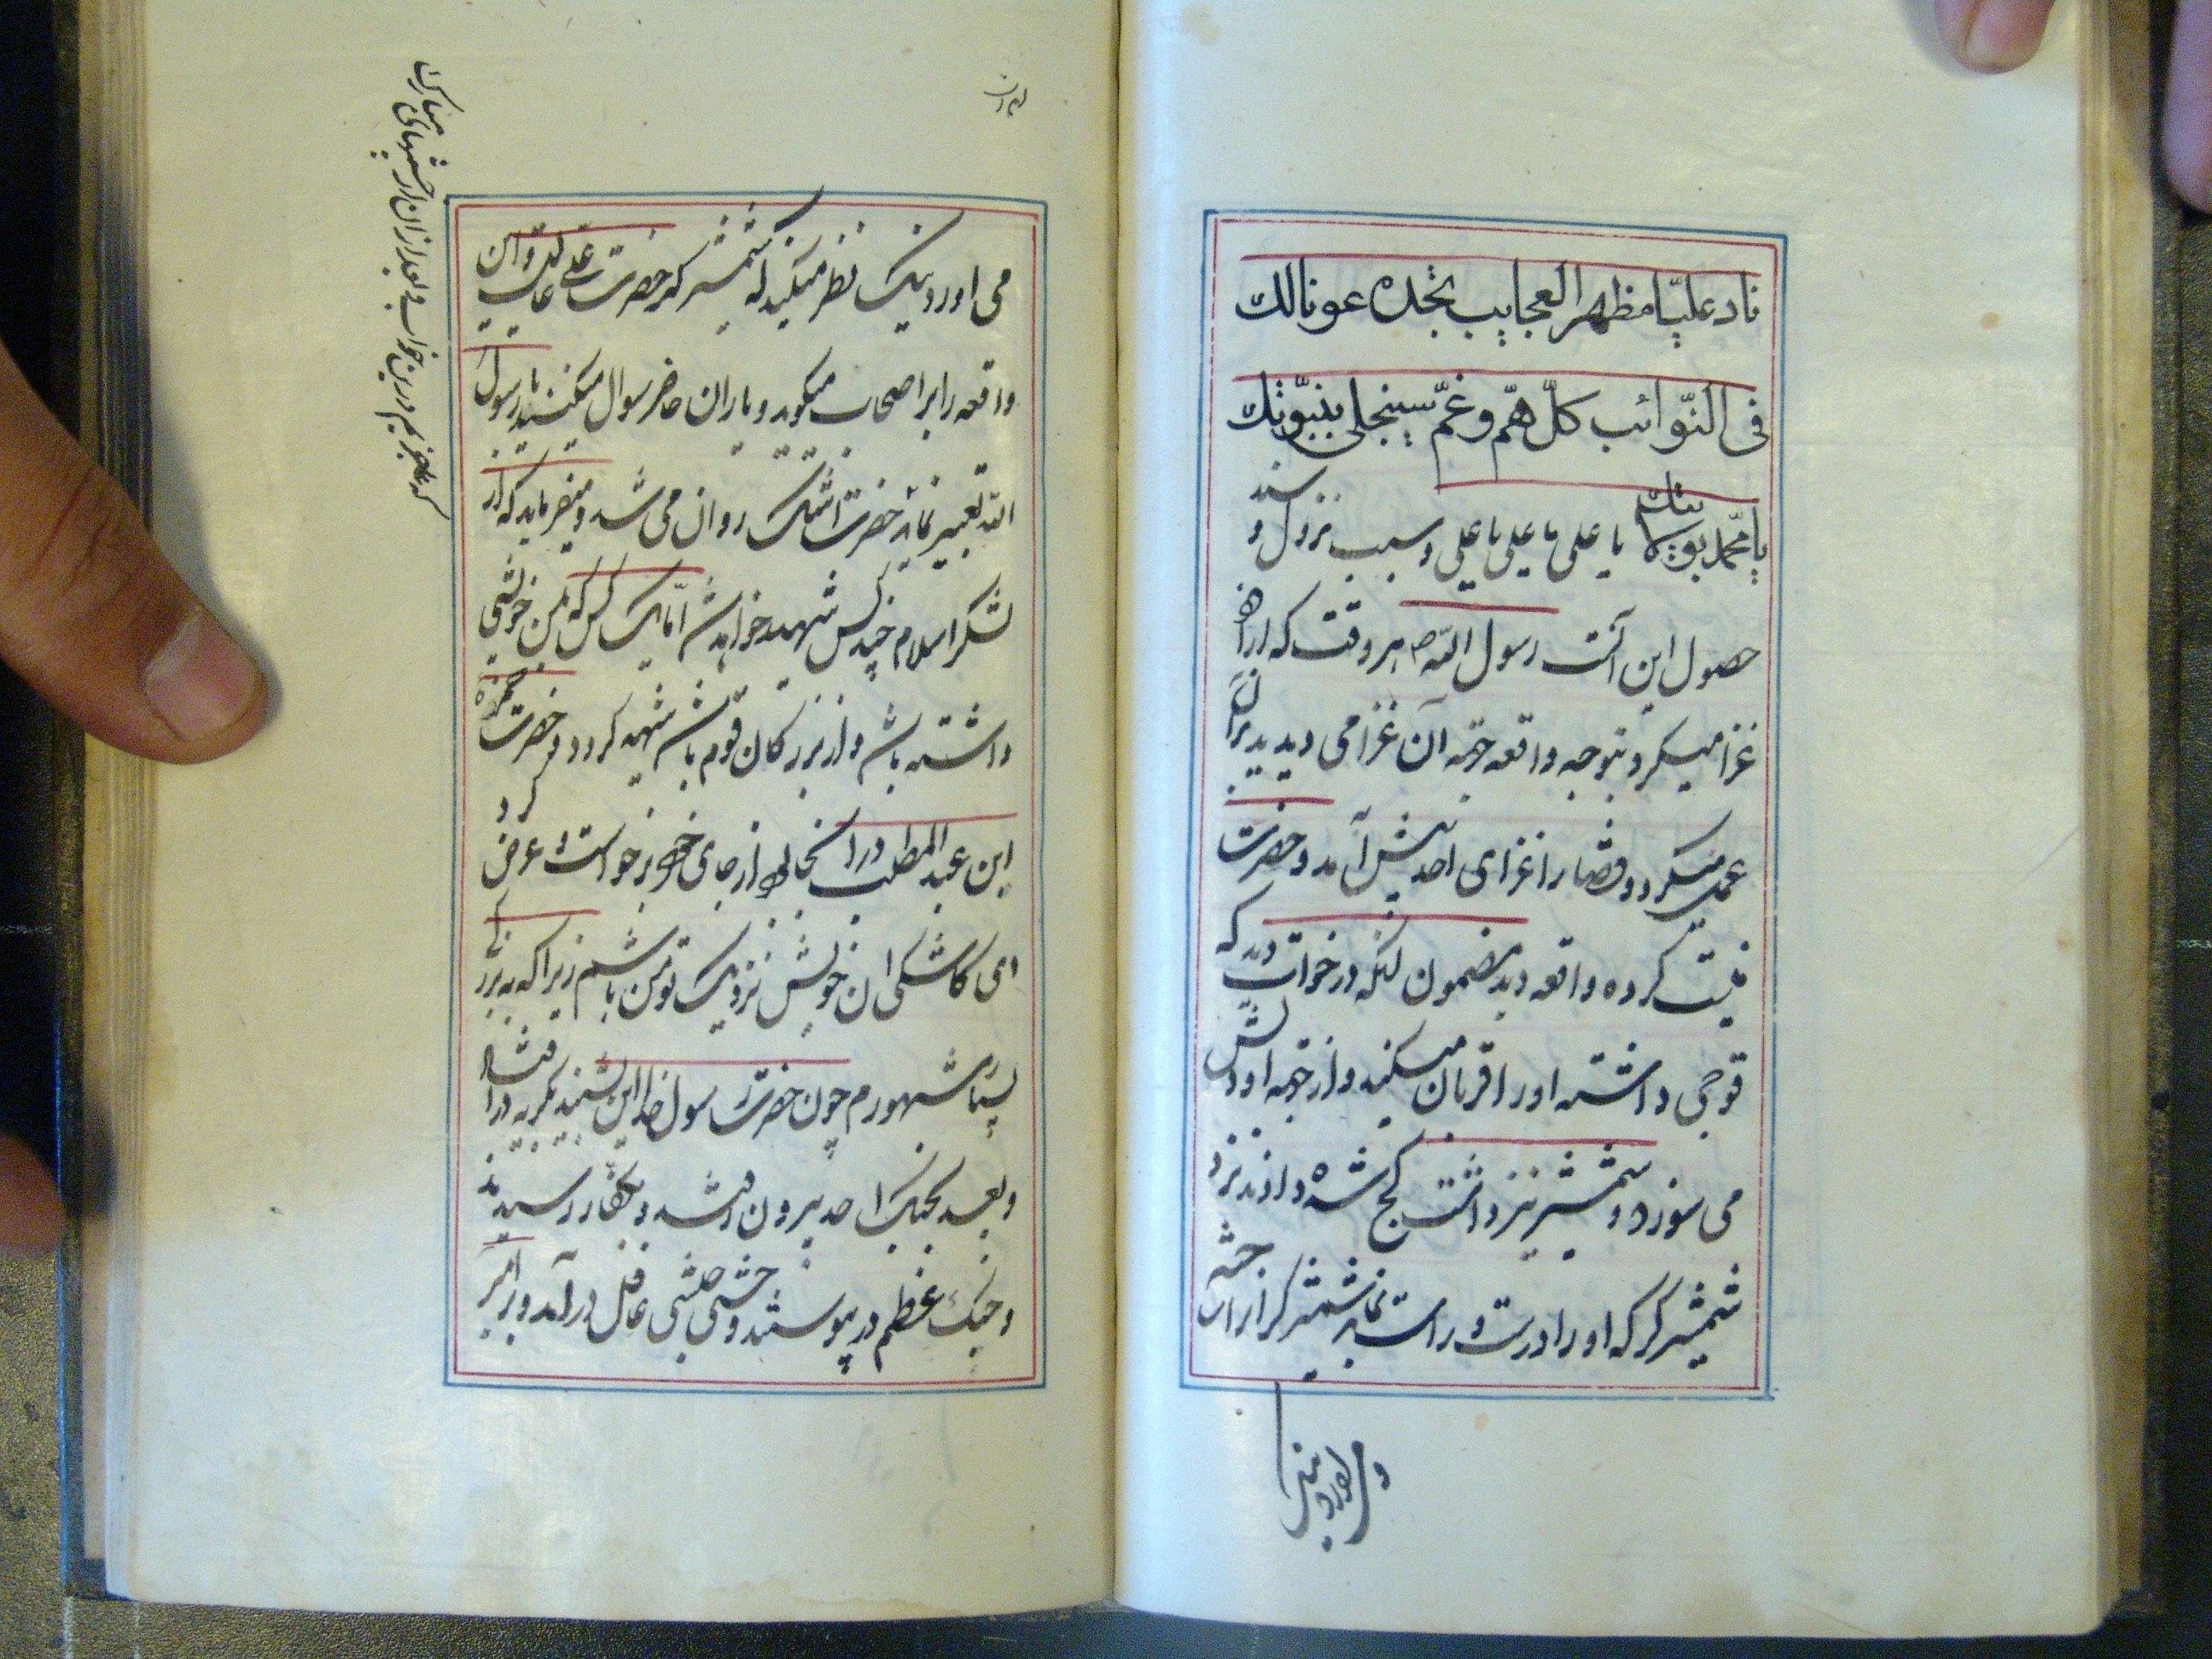 ناد علیّا مظهر العجایب تجده عونا لك
فی النّوائب کلّ همّ وغمّ سینجلی بنبوّتك
یا محمّد بولایتك یا علی یا علی یا علی و سبب نزول و سند
حصول این آنست رسول الله ص هر وقت که اراده
غزا میکرد بتوجه واقعه جهة آن غزا می دید بران
عمل میکرد و قضا را غزای احد پیش آمد و حضرت
نیت کرده واقعه دید مضمون آنکه در خواب دید که
قوچی داشته او را قربان میکنند و از جهة او دلش
می سوزد و شمشیر نیز داشت کج شده دادند نزد
شمشیرگر که او را درست و راست نماید شمشیرگر از ان
می اورد نیک
می اورد و نیک نظر میکند که شمشیر که حضرت علی
واقعه را بر اصحاب میگوید و یاران حاضر سوال میکنند یا رسول
الله تعبیر نماید حضرت اشك روان می شد و میفرماید که از
لشکر اسلام چند کس شهید خواهد شد اما یک کس که بمن خویشی
داشته باشد و از بزرکان قوم باشد شهید کردد و حضرت حمزه
ابن عبد المطلب در انجا بود از جای خود برخواست و عرض کرد
ای کاشکی ان خویش نزدیک تو من باشم زیرا که به برر
بسیار مشهورم چون حضرت رسول خدا این بشنید بگریه در افتاد
وبعد بجنك احد بیرون رفتند و بکفار رسیدند
و جنك عظیم در پیوستند وحشی حبشی غافل درآمد و بر امیر
که عاجزیم در این خواب و بعد از ان از چشمهای مبارك